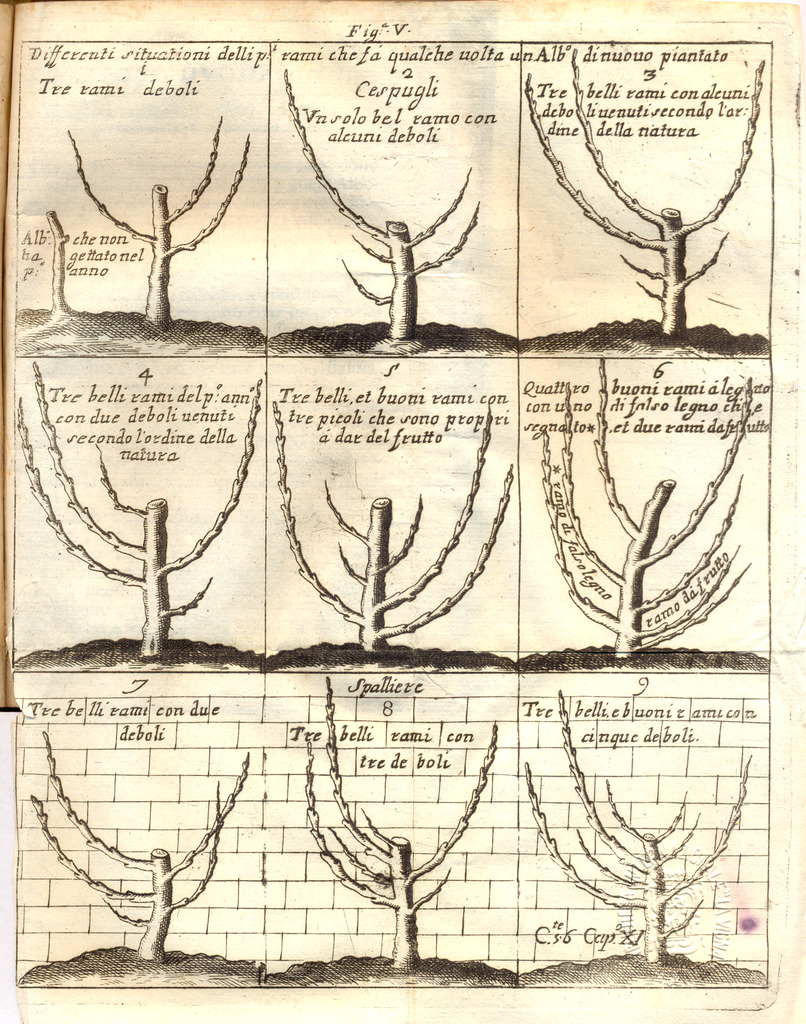 Fig.ᵃ V.
Differenti situationi delli p.ⁱ rami che fà qualche volta un Alb.º di nuouo piantato
1
Tre rami deboli
Alb.º che non
ha gettato nel
p.º anno
2
Cespugli
Vn solo bel ramo con
alcuni deboli
3
Tre belli rami con alcuni
deboli uenuti secondo l'or:
dine della natura
4
Tre belli rami del p.º ann.º
con due deboli uenuti
secondo l'ordine della
natura
5
Tre belli, et buoni rami con
tre picoli che sono propri
à dar del frutto
6
Quattro buoni rami à legno
con uno di falso legno ch'
segnato* et due rami da frutto
* ramo di falso legno
ramo da frutto
7
Tre belli rami con due
deboli
Spalliere
8
Tre belli rami con
tre deboli
9
Tre belli, e buoni rami con
cinque deboli.
C.ᵗᵉ 56 Cap.º XI